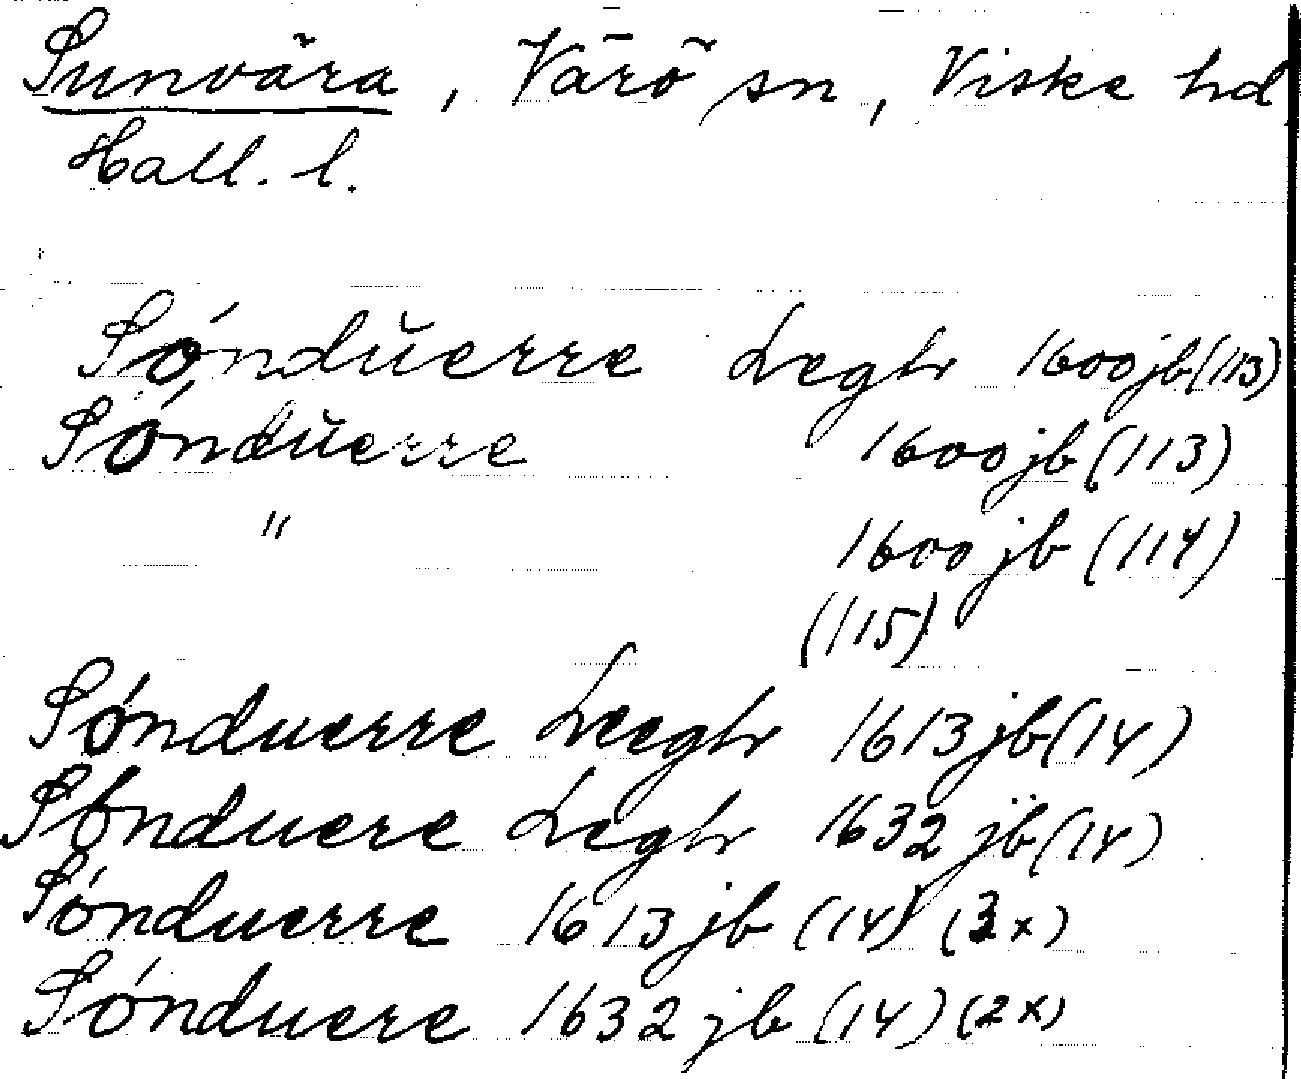 Sunvära, Värö sn, Viske hd
Hall. l.
Sónduerre Leghr 1600 jb (113)
Sónduerre 1600 jb (113)
" 1600 jb (114)
(115)
Sónduerre Leeghr 1613 jb (14)
Sónduere Leghr 1632 jb (14)
Sónduerre 1613 jb (14) (3x)
Sónduere 1632 jb (14) (2x)